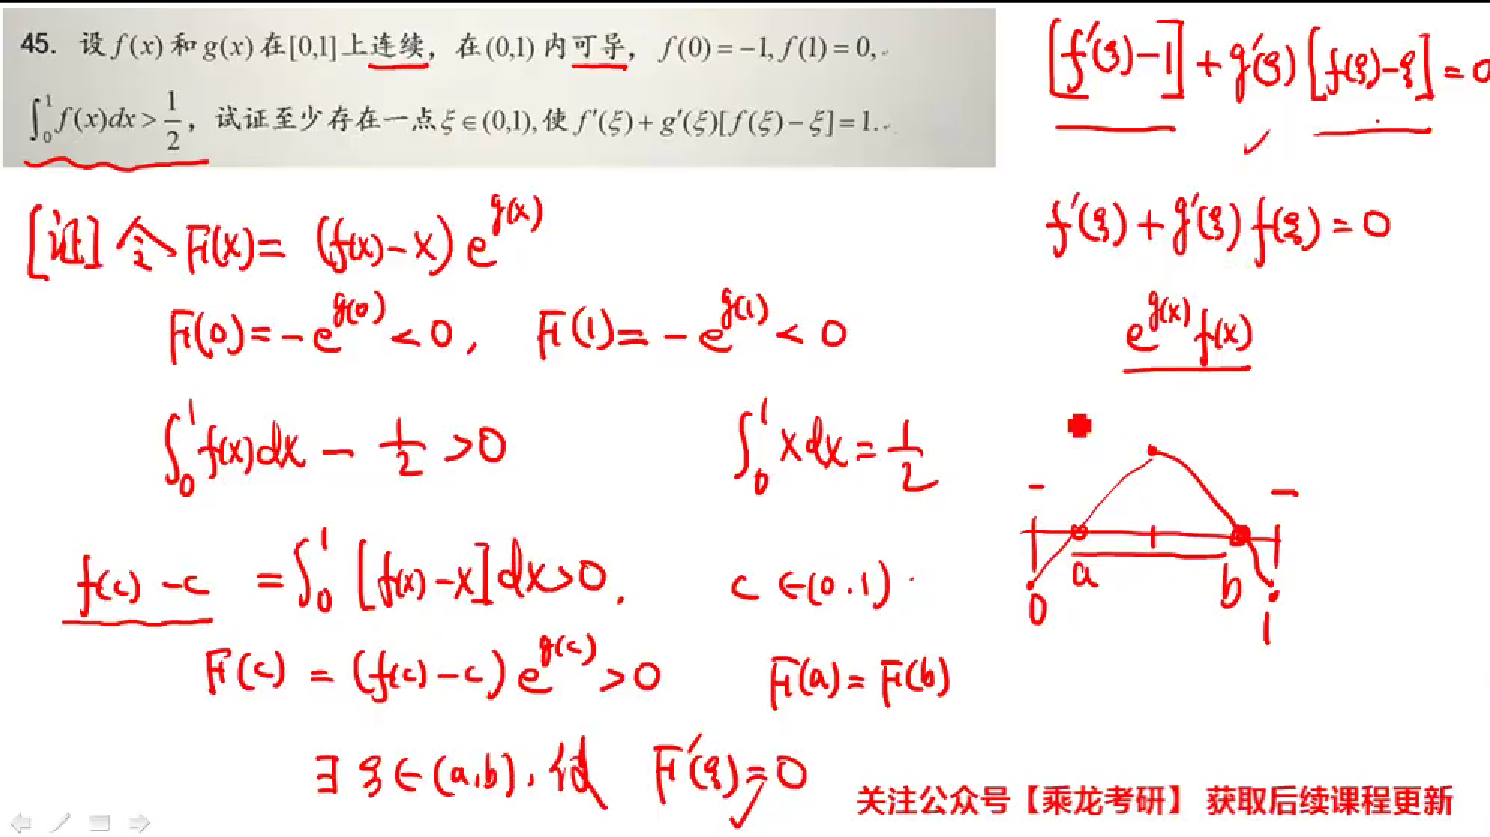 45. 设 f(x) 和 g(x) 在 [0,1] 上连续，在 (0,1) 内可导， f(0)=-1, f(1)=0,
∫₀¹ f(x)dx > 1/2 ，试证至少存在一点 ξ∈(0,1), 使 f′(ξ)+g′(ξ)[f(ξ)-ξ]=1.
[f′(ξ)-1]+g′(ξ)[f(ξ)-ξ]=0
f′(ξ)+g′(ξ)f(ξ)=0
e^{g(x)}f(x)
[证] 令 F(x)=(f(x)-x)e^{g(x)}
F(0)=-e^{g(0)}<0, F(1)=-e^{g(1)}<0
∫₀¹ f(x)dx - 1/2 >0 ∫₀¹ xdx=1/2
f(c)-c =∫₀¹ [f(x)-x]dx>0. c∈(0.1)
F(c) = (f(c)-c)e^{g(c)}>0 F(a)=F(b)
∃ξ∈(a,b), 使 F′(ξ)=0
- -
a b
0 1
关注公众号【乘龙考研】 获取后续课程更新